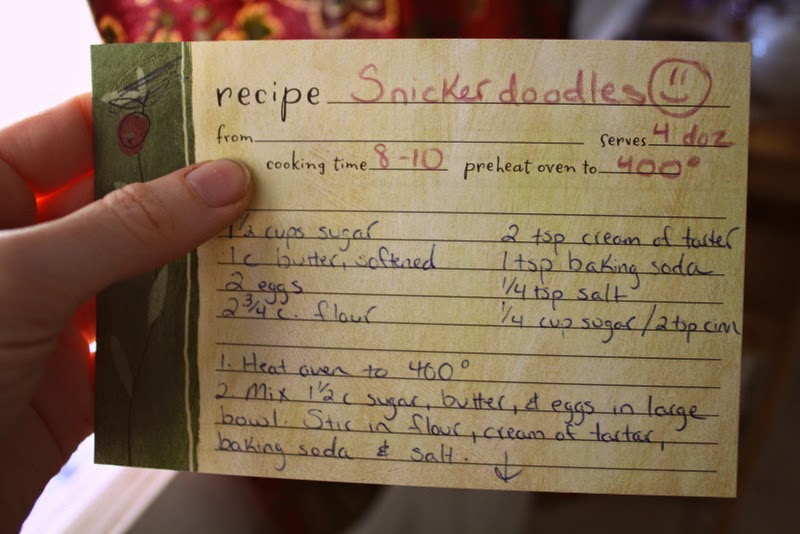 recipe Snickerdoodles
from serves 4 doz
cooking time 8-10 preheat oven to 400°
1 1/2 cups sugar 2 tsp cream of tarter
1 c butter, softened 1 tsp baking soda
2 eggs 1/4 tsp salt
2 3/4 c. flour 1/4 cup sugar / 2 tsp cinn
1. Heat oven to 400°
2. Mix 1 1/2 c sugar, butter, & eggs in large
bowl. Stir in flour, cream of tartar,
baking soda & salt. ↓